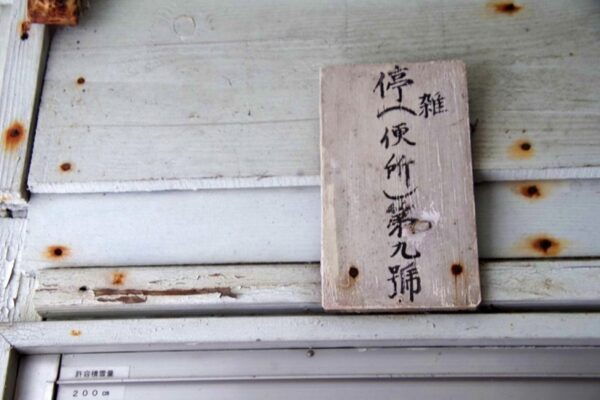 停雑(便所)第九號
許容積雪量
200㎝